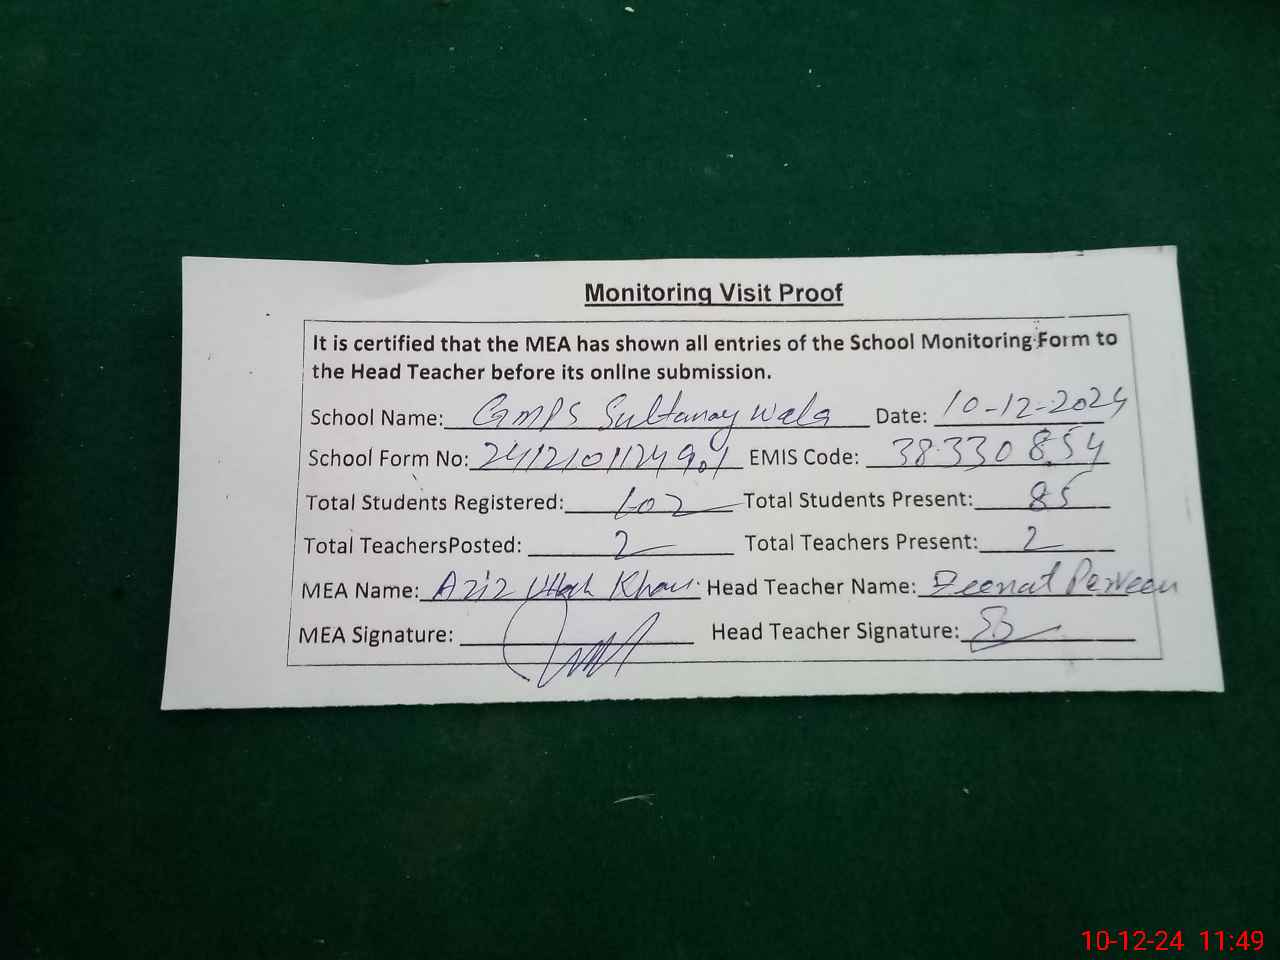 Monitoring Visit Proof
It is certified that the MEA has shown all entries of the School Monitoring Form to
the Head Teacher before its online submission.
School Name: GMPS Sultanay Wala Date: 10-12-2024
School Form No: EMIS Code: 38330854
Total Students Registered: 102 Total Students Present: 85
Total TeachersPosted: 2 Total Teachers Present: 2
MEA Name: Aziz Ullah Khan Head Teacher Name: Zeenat Perveen
MEA Signature: Head Teacher Signature:
10-12-24 11:49